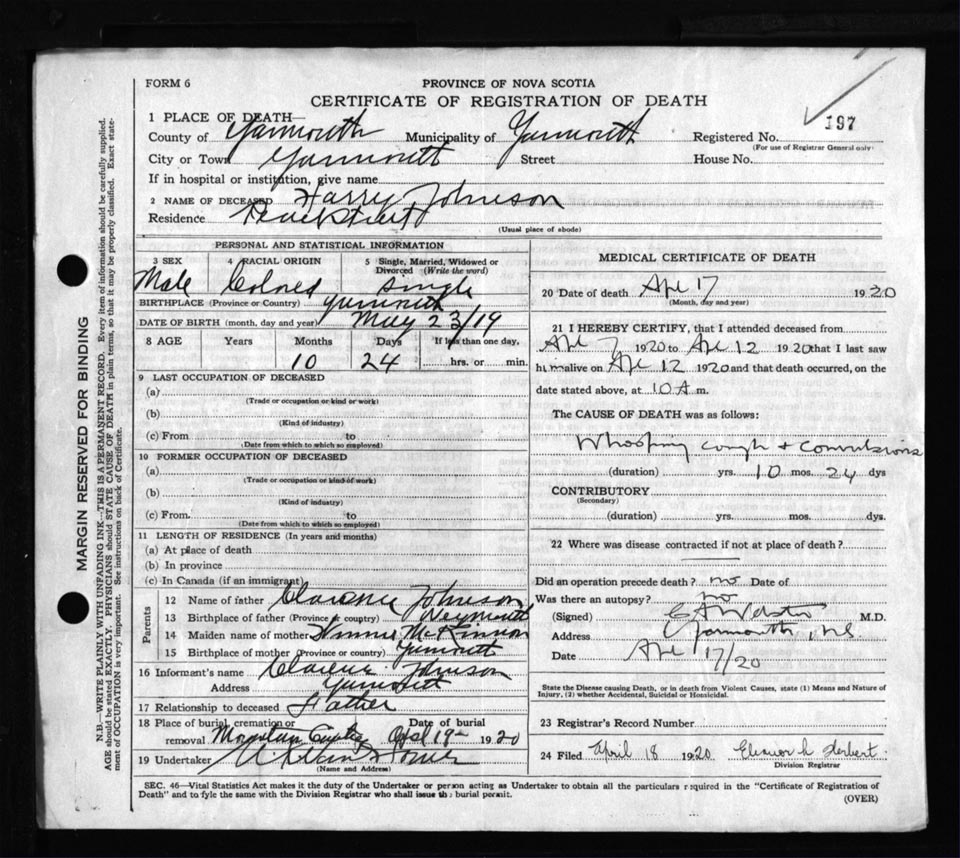 FORM 6
PROVINCE OF NOVA SCOTIA
CERTIFICATE OF REGISTRATION OF DEATH
197
1 PLACE OF DEATH—
County of Yarmouth Municipality of Yarmouth Registered No.
(For use of Registrar General only)
City or Town Yarmouth Street House No.
If in hospital or institution, give name
2 NAME OF DECEASED Harry Johnson
Residence
(Usual place of abode)
PERSONAL AND STATISTICAL INFORMATION
3 SEX 4 RACIAL ORIGIN 5 Single, Married, Widowed or Divorced (Write the word)
Male Colored Single
BIRTHPLACE (Province or Country) Yarmouth
DATE OF BIRTH (month, day and year) May 23/19
8 AGE Years Months Days If less than one day,
10 24 hrs. or min.
9 LAST OCCUPATION OF DECEASED
(a)
(Trade or occupation or kind or work)
(b)
(Kind of industry)
(c) From to
(Date from which to which so employed)
10 FORMER OCCUPATION OF DECEASED
(a)
(Trade or occupation or kind of work)
(b)
(Kind of industry)
(c) From to
(Date from which to which so employed)
11 LENGTH OF RESIDENCE (In years and months)
(a) At place of death
(b) In province
(c) In Canada (if an immigrant)
Parents
12 Name of father Clarence Johnson
13 Birthplace of father (Province or country) Weymouth
14 Maiden name of mother Winnie McKinnon
15 Birthplace of mother (Province or country) Yarmouth
16 Informant's name Clarence Johnson
Address Yarmouth
17 Relationship to deceased Father
18 Place of burial, cremation or Date of burial
removal Mountain April 19 1920
19 Undertaker
(Name and Address)
MEDICAL CERTIFICATE OF DEATH
20 Date of death Apr 17 1920
(Month, day and year)
21 I HEREBY CERTIFY, that I attended deceased from
Apr 7 1920 to Apr 12 1920 that I last saw
him alive on Apr 12 1920 and that death occurred, on the
date stated above, at 10 A m.
The CAUSE OF DEATH was as follows:
Whooping cough + convulsions
(duration) yrs. 10 mos. 24 dys
CONTRIBUTORY
(Secondary)
(duration) yrs. mos. dys.
22 Where was disease contracted if not at place of death?
Did an operation precede death? no Date of
Was there an autopsy? no
(Signed) M.D.
Address Yarmouth, N.S
Date Apr 17/20
State the Disease causing Death, or in death from Violent Causes, state (1) Means and Nature of
Injury, (2) whether Accidental, Suicidal or Homicidal.
23 Registrar's Record Number
24 Filed April 18 1920 Eleanor L Herbert
Division Registrar
SEC. 46—Vital Statistics Act makes it the duty of the Undertaker or person acting as Undertaker to obtain all the particulars required in the "Certificate of Registration of
Death" and to fyle the same with the Division Registrar who shall issue the burial permit.
(OVER)
MARGIN RESERVED FOR BINDING
N.B.—WRITE PLAINLY WITH UNFADING INK—THIS IS A PERMANENT RECORD. Every item of information should be carefully supplied.
AGE should be stated EXACTLY. PHYSICIANS should STATE CAUSE OF DEATH in plain terms, so that it may be properly classified. Exact state-
ment of OCCUPATION is very important. See instructions on back of Certificate.